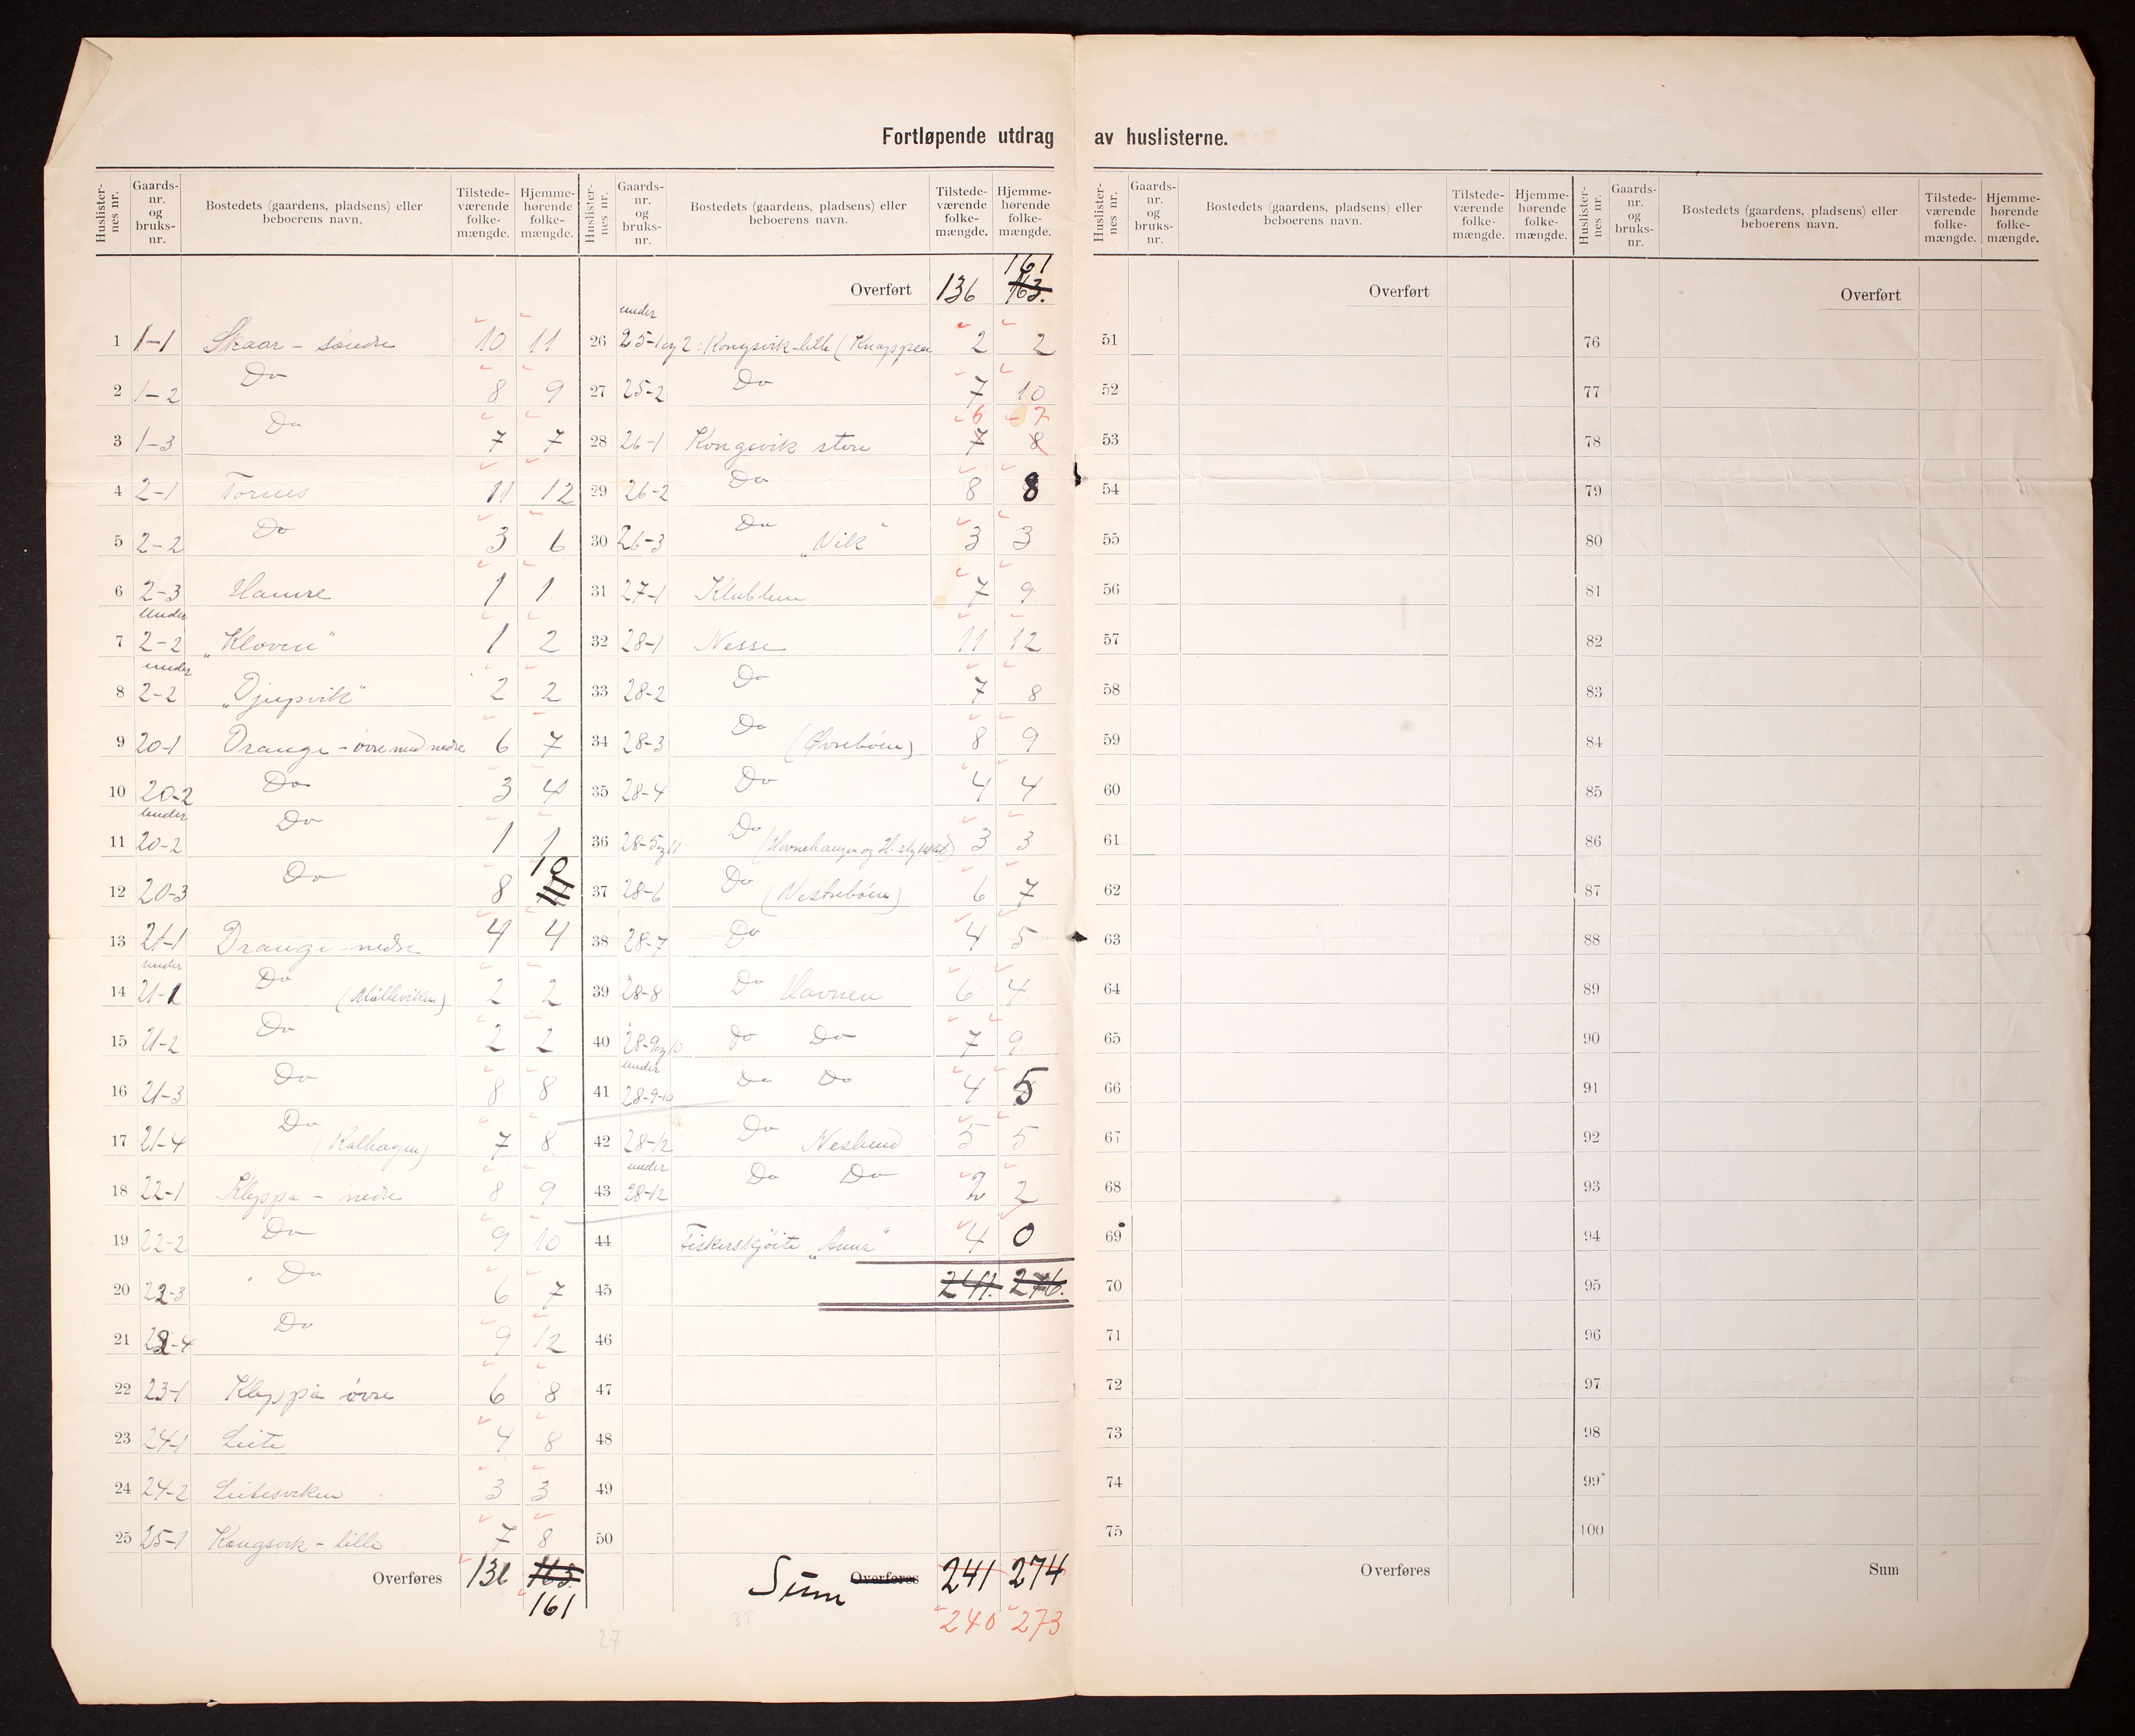 Fortløpende utdrag av huslisterne.
Huslisternes nr. Gaards-nr. og bruks-nr. Bostedets (gaardens, pladsens) eller beboerens navn. Tilstede-værende folke-mængde. Hjemme-hørende folke-mængde.
1 1-1 Skaar - søndre 10 11
2 1-2 Do 8 9
3 1-3 Do 7 7
4 2-1 Tornes 11 12
5 2-2 Do 3 6
6 2-3 Hamre 1 1
7 under 2-2 „Kloven" 1 2
8 under 2-2 „Djupvik" 2 2
9 20-1 Drange - øvre med nedre 6 7
10 20-2 Do 3 4
11 under 20-2 Do 1 1
12 20-3 Do 8 10
13 21-1 Drange - nedre 4 4
14 under 21-1 Do (Mølleviken) 2 2
15 21-2 Do 2 2
16 21-3 Do 8 8
17 21-4 Do (Kalhagen) 7 8
18 22-1 Kleppa - nedre 8 9
19 22-2 Do 9 10
20 22-3 Do 6 7
21 22-4 Do 9 12
22 23-1 Kleppa øvre 6 8
23 24-1 Leite 4 8
24 24-2 Leitesviken 3 3
25 25-1 Kongsvik - lille 7 8
Overføres 136 163
161
Huslisternes nr. Gaards-nr. og bruks-nr. Bostedets (gaardens, pladsens) eller beboerens navn. Tilstede-værende folke-mængde. Hjemme-hørende folke-mængde.
161
Overført 136 163.
26 under 25-1 og 2: Kongsvik-lille (Knappen 2 2
27 25-2 Do 7 10
6 7
28 26-1 Kongsvik store 7 8
29 26-2 Do 8 8
30 26-3 Do „Vik" 3 3
31 27-1 Klubben 7 9
32 28-1 Nesse 11 12
33 28-2 Do 7 8
34 28-3 Do (Øvrebøen) 8 9
35 28-4 Do 4 4
36 28-5 og 11 Do 3 3
37 28-6 Do (Vestrebøen) 6 7
38 28-7 Do 4 5
39 28-8 Do Havnen 6 4
40 28-9 og 10 Do Do 7 9
41 under 28-9-10 Do Do 4 5
42 28-12 Do Neslund 5 5
43 under 28-12 Do Do 2 2
44 Fiskerskjøite „Anna" 4 0
45 241. 276.
46
47
48
49
50
Sum Overføres 241 274
240 273
27
35
Huslisternes nr. Gaards-nr. og bruks-nr. Bostedets (gaardens, pladsens) eller beboerens navn. Tilstede-værende folke-mængde. Hjemme-hørende folke-mængde.
Overført
51
52
53
54
55
56
57
58
59
60
61
62
63
64
65
66
67
68
69
70
71
72
73
74
75
Overføres
Huslisternes nr. Gaards-nr. og bruks-nr. Bostedets (gaardens, pladsens) eller beboerens navn. Tilstede-værende folke-mængde. Hjemme-hørende folke-mængde.
Overført
76
77
78
79
80
81
82
83
84
85
86
87
88
89
90
91
92
93
94
95
96
97
98
99
100
Sum